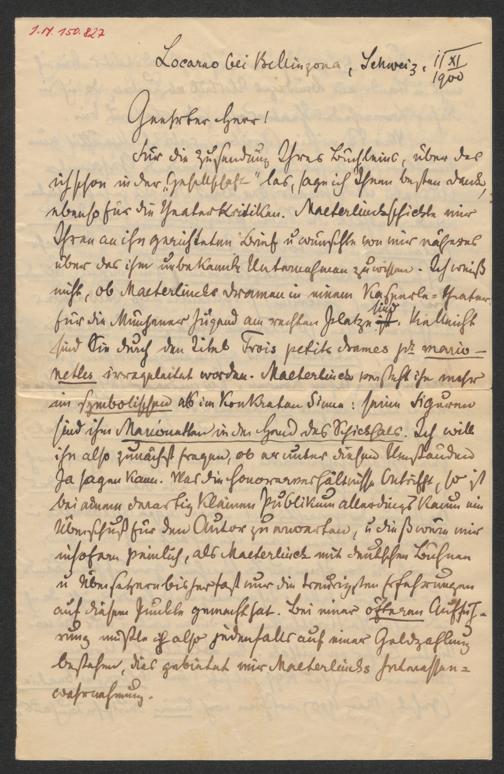 I.N. 150.827
Locarno bei Bellinzona, Schweiz, 1/XI 1900
Geehrter Herr!
Für die Zusendung Ihres Büchleins, über das
ich schon in der „Gesellschaft" las, sage ich Ihnen besten Dank,
ebenso für die Theaterkritiken. Maeterlinck schickte mir
Ihren an ihn gerichteten Brief u wünschte von mir näheres
über das ihm unbekannte Unternehmen zu wissen. Ich weiß
nicht, ob Maeterlincks Dramen in einem Kasperle-Theater
für die Münchener Jugend am rechten Platze sind. Vielleicht
sind Sie durch den Titel Trois petits drames pr mario-
nettes irregeleitet worden. Maeterlinck versteht ihn mehr
im symbolischen als im konkreten Sinne: seine Figuren
sind ihm Marionetten in der Hand des Schicksals. Ich will
ihn also zunächst fragen, ob er unter diesen Umständen
Ja sagen kann. Was die Honorarverhältnisse betrifft, so ist
bei einem derartig kleinen Publikum allerdings kaum ein
Überschuß für den Autor zu erwarten, u dies wäre mir
insofern peinlich, als Maeterlinck mit deutschen Bühnen
u Übersetzern bisher fast nur die traurigsten Erfahrungen
auf diesem Punkte gemacht hat. Bei einer öfteren Auffüh-
rung müßte ich also jedenfalls auf einer Geldzahlung
bestehen, dies gebietet mir Maeterlincks Interessen-
wahrnehmung.